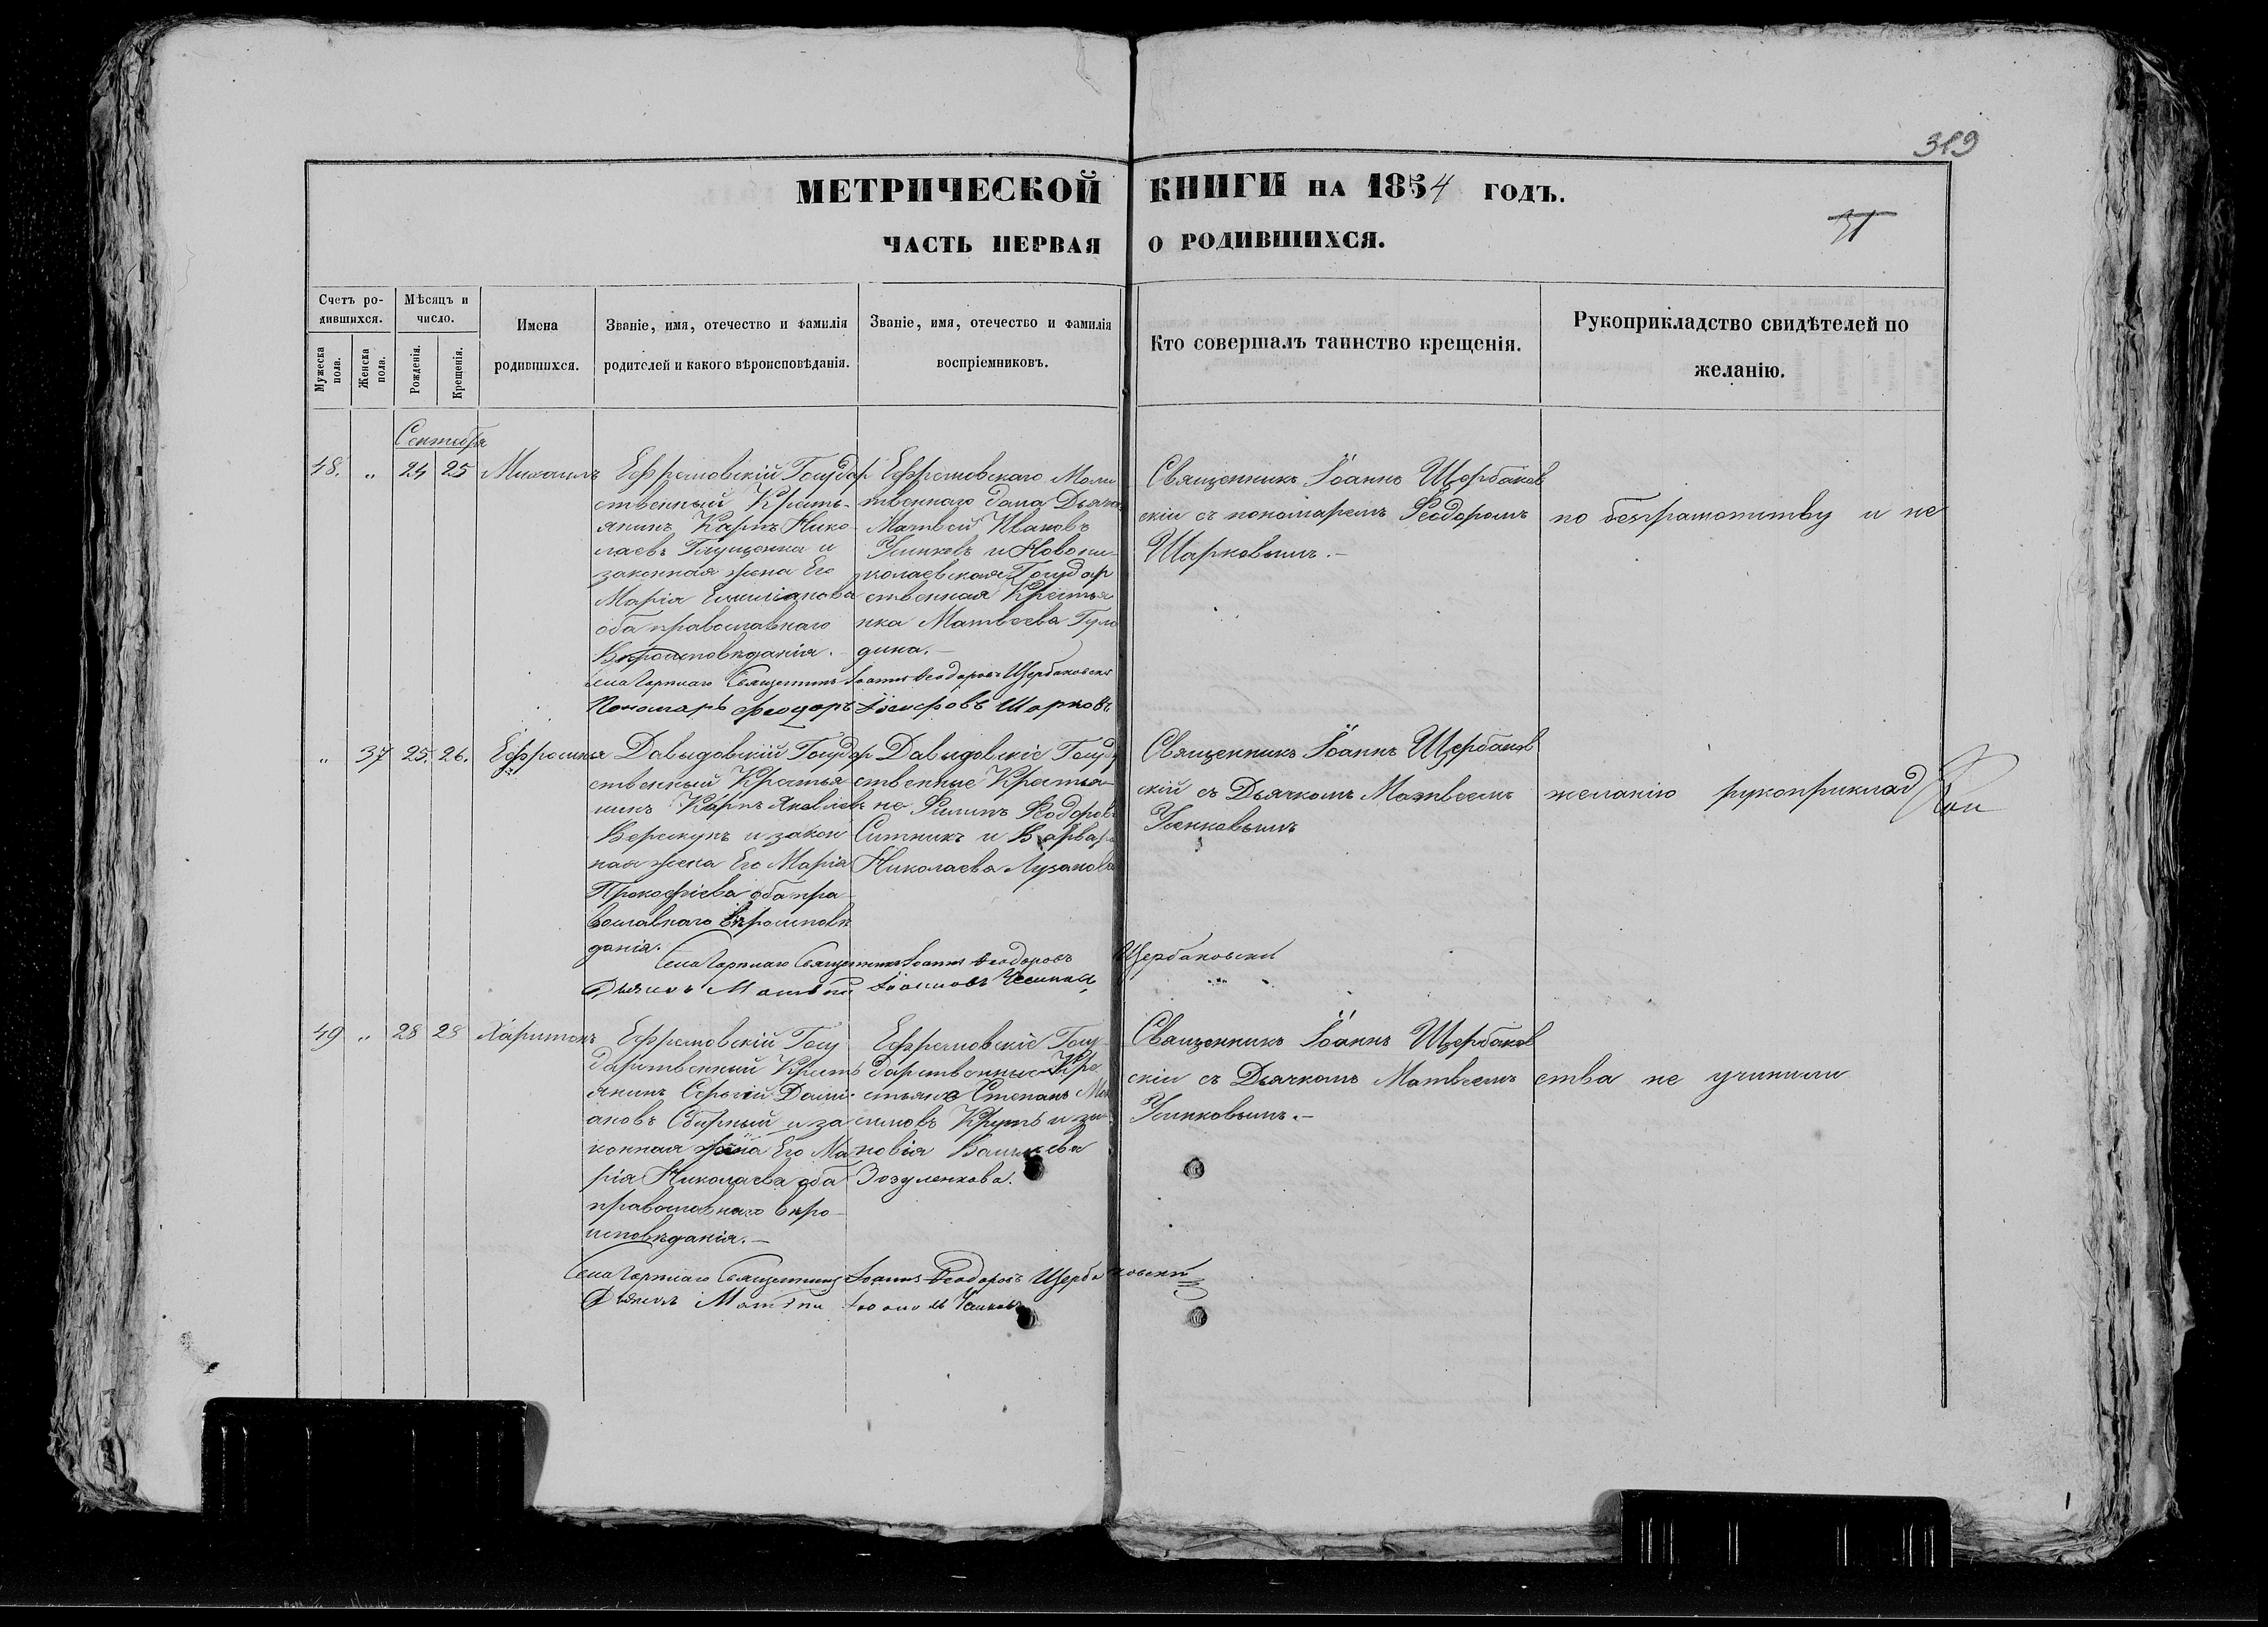 319
МЕТРИЧЕСКОЙ КНИГИ НА 1854 ГОДЪ.
51
ЧАСТЬ ПЕРВАЯ О РОДИВШИХСЯ.
Счетъ родившихся.
Мужеска пола.
Женска пола.
Мѣсяцъ и число.
Рожденія.
Крещенія.
Имена родившихся.
Званіе, имя, отечество и фамилія родителей и какого вѣроисповѣданія.
Званіе, имя, отечество и фамилія воспріемниковъ.
Кто совершалъ таинство крещенія.
Рукоприкладство свидѣтелей по желанію.
Сентября
48. „ 24 25 Михаилъ
Ефремовскій Государ
ственный Кресть-
янинъ Карпъ Нико-
лаевъ Глущенка и
законная жена Его
Марія Емиліанова
оба православнаго
Вѣроисповѣданія.
Ефремовскаго Моли
твеннаго дома Дьячокъ
Матвей Ивановъ
Усиковъ и Новони-
колаевская Государ
ственная Крестья
нка Матвеева Гуло
дина.
Священникъ Іоаннъ Щербаков
скій съ пономаремъ Ѳеодоромъ
Шарковымъ.
по безграмотству и не
Священникъ Іоаннъ Ѳеодоровъ Щербаковскій
Пономарь Феодоръ Іосифовъ Шарковъ
„ 37 25. 26. Ефросинья
Давыдовскій Государ
ственный Крестья
нинъ Карпъ Яковлевъ
Верекунъ и закон
ная жена Его Марія
Прокофіева оба пра
вославнаго Вѣроисповѣ
данія.
Давыдовскіе Госуд
ственные Крестья-
не Филипъ Ѳеодоровъ
Ситникъ и Варвара
Николаева Лузанова
Священникъ Іоаннъ Щербаков
скій съ Дьячкомъ Матвеемъ
Усиковымъ
желанію рукоприклад
Священникъ Іоаннъ Ѳеодоровъ Щербаковскій
Дьячокъ Матвей Іоанновъ Усиковъ
49 „ 28 28 Харитонъ
Ефремовскій Госу
дарственный Кресть
янинъ Сергій Дами-
ановъ Сбирный и за
конная жена Его Ма
рія Николаева оба
православнаго вѣро-
исповѣданія.
Ефремовскіе Госу
дарственные Кре
стьяне Степанъ
Круть и
новія Васильева
Зозуленкова.
Священникъ Іоаннъ Щербаков
скій съ Дьячкомъ Матвеемъ
Усиковымъ.
ства не учинили
Священникъ Іоаннъ Ѳеодоровъ Щербаковскій
Дьячокъ Матвей Іоанновъ Усиковъ